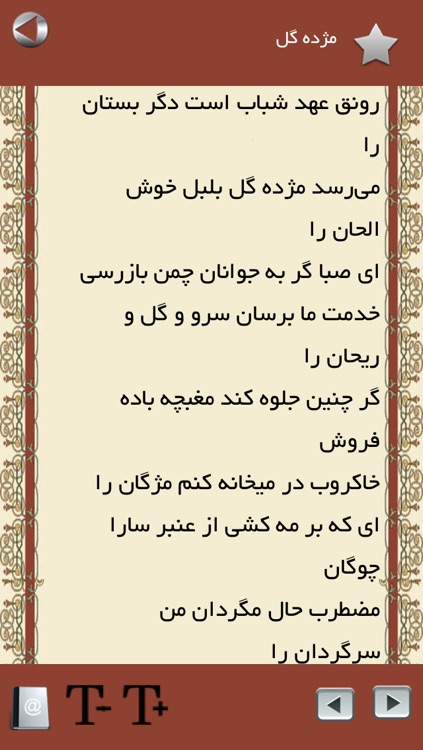 مژده گل
رونق عهد شباب است دگر بستان
را
می‌رسد مژده گل بلبل خوش
الحان را
ای صبا گر به جوانان چمن بازرسی
خدمت ما برسان سرو و گل و
ریحان را
گر چنین جلوه کند مغبچه باده
فروش
خاکروب در میخانه کنم مژگان را
ای که بر مه کشی از عنبر سارا
چوگان
مضطرب حال مگردان من
سرگردان را
@ T- T+